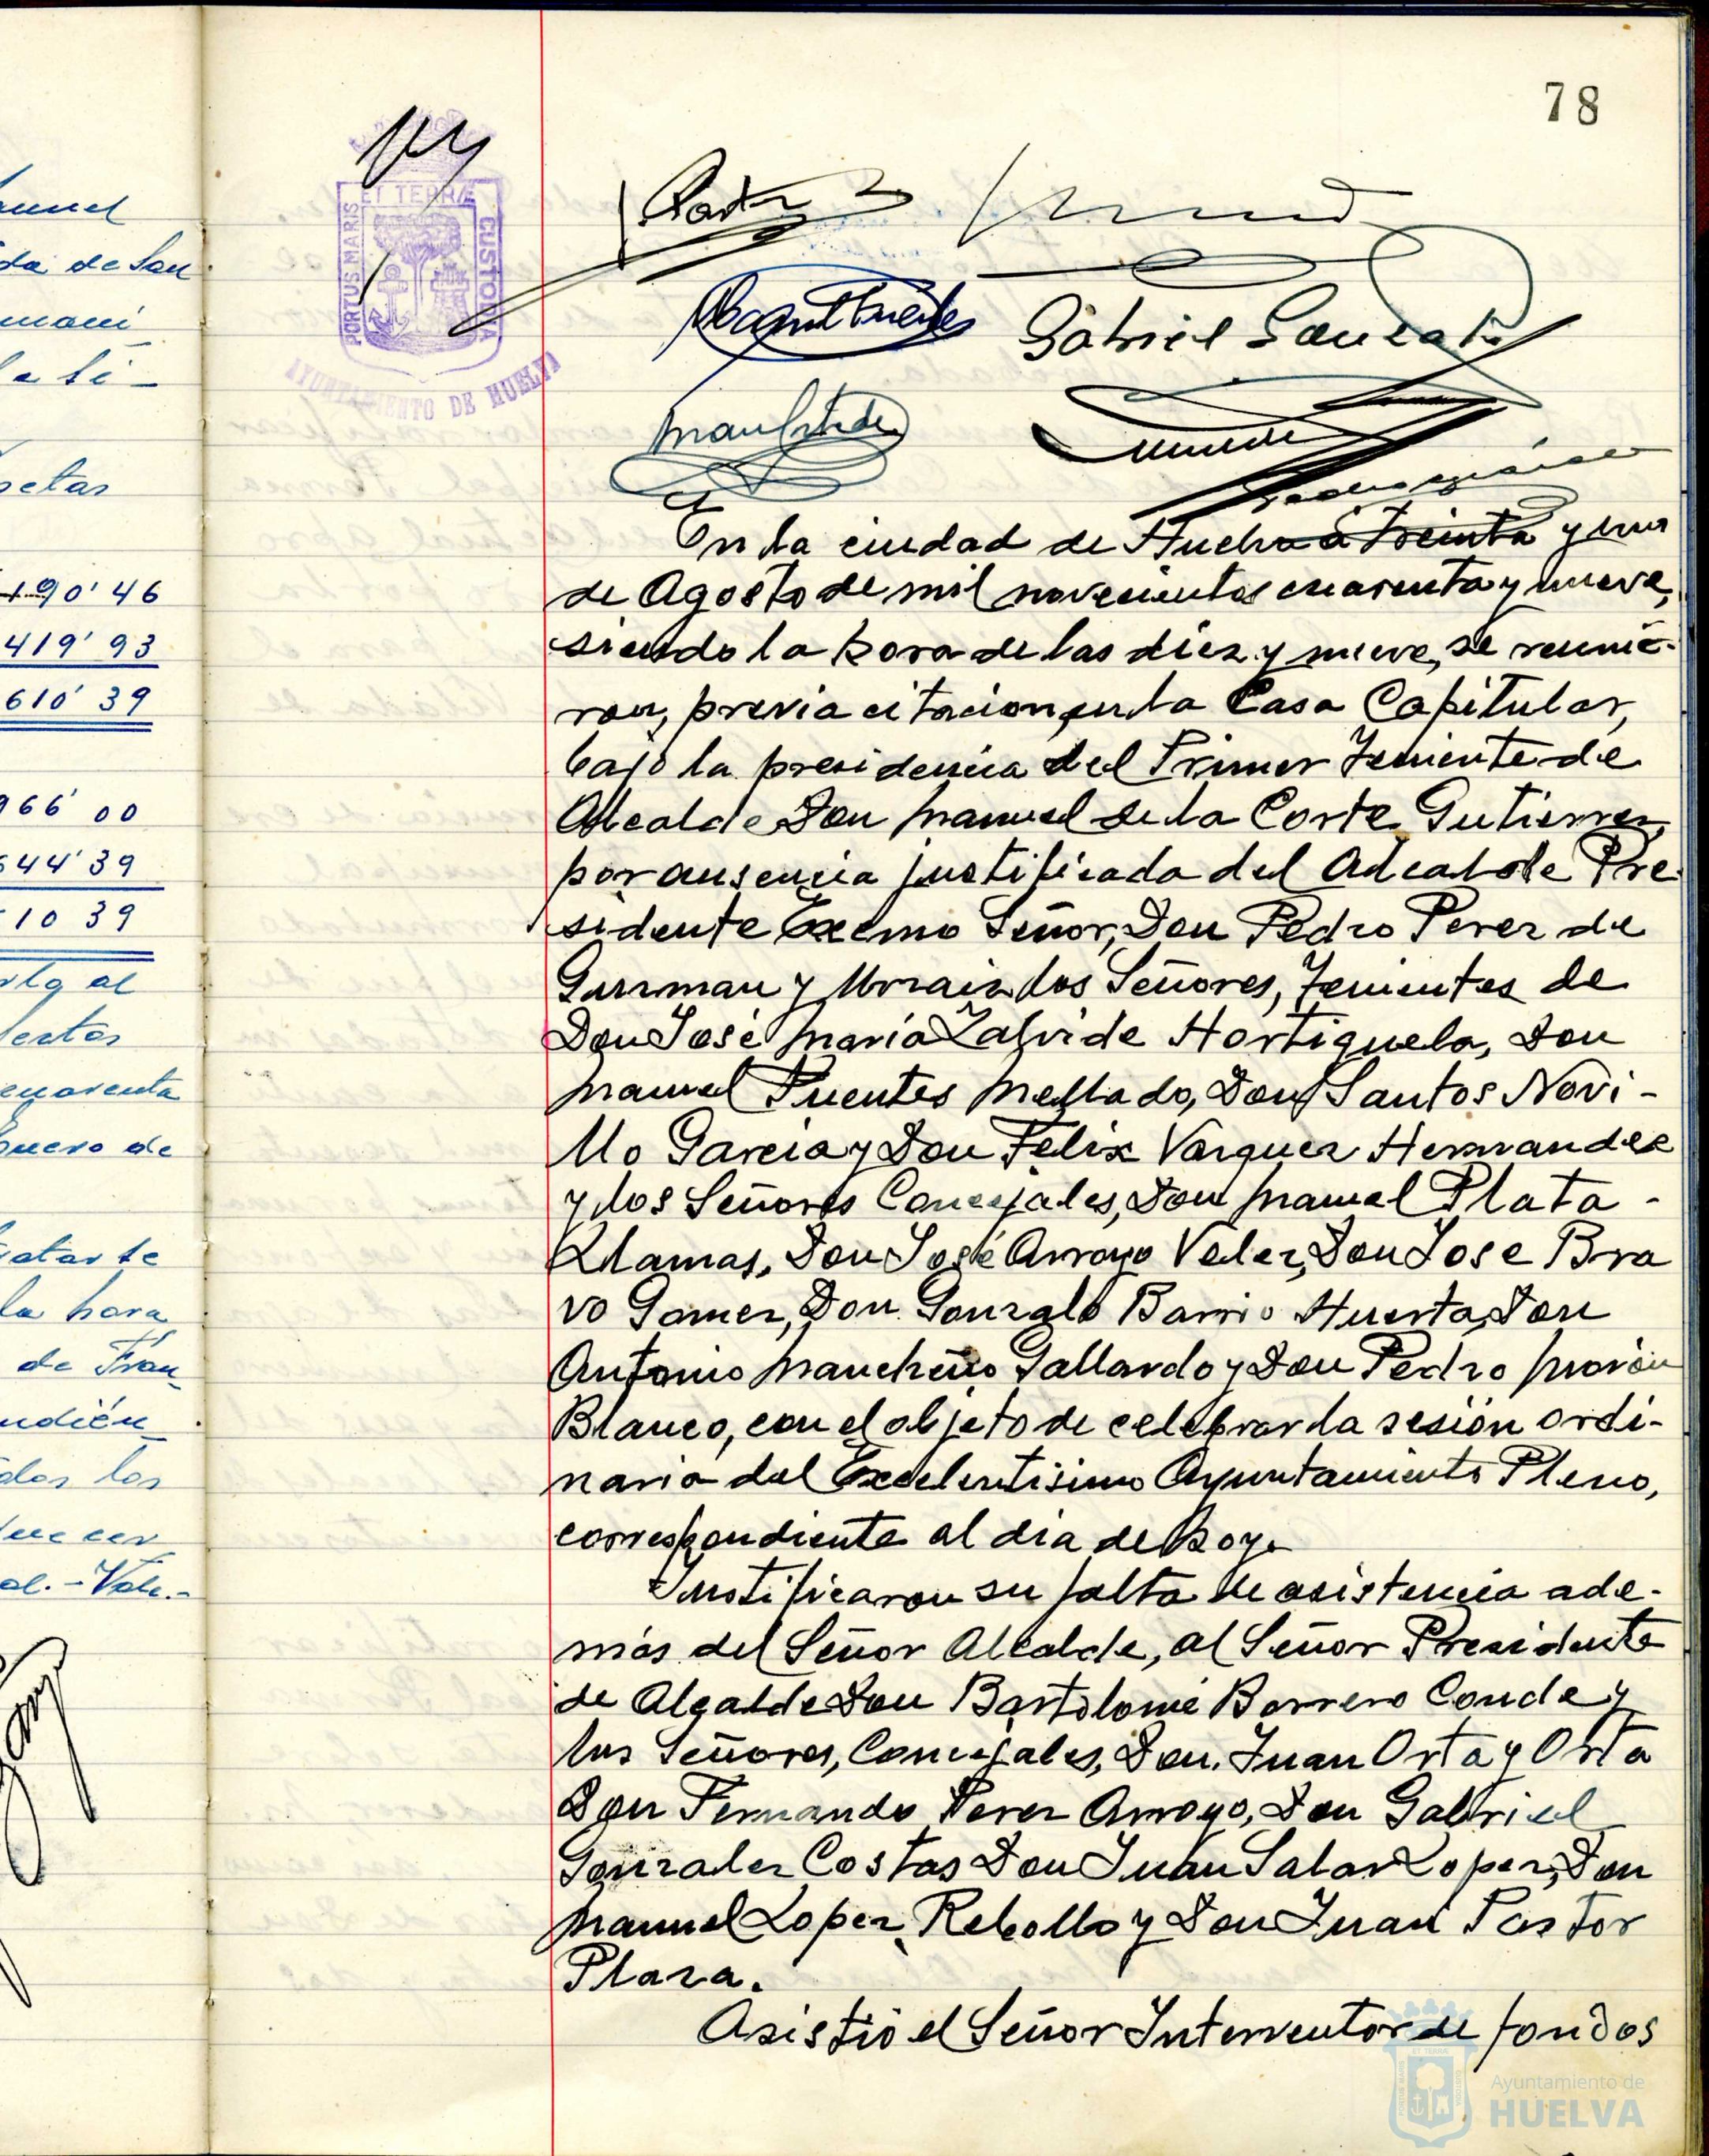 78
PORTUS MARIS ET TERRÆ CUSTODIA
AYUNTAMIENTO DE HUELVA
Gabriel
En la ciudad de Huelva a treinta y uno
de Agosto de mil novecientos cuarenta y nueve,
siendo la hora de las diez y nueve, se reunie-
ron, previa citacion, en la Casa Capitular,
bajo la presidencia del Primer Teniente de
Alcalde Don Manuel de la Corte Gutierrez,
por ausencia justificada del Alcalde Pre-
sidente Excmo Señor, Don Pedro Perez de
Guzman y Urzaiz, los Señores, Tenientes de
Don José María Zalvide Hortiguela, Don
Manuel Fuentes Mellado, Don Santos Novi-
llo Garcia y Don Felix Vazquez Hernandez
y los Señores Concejales, Don Manuel Plata -
Llamas, Don José Arroyo Velez, Don Jose Bra
vo Gomez, Don Gonzalo Barrio Huerta, Don
Antonio Mancheño Gallardo y Don Pedro Morón
Blanco, con el objeto de celebrar la sesión ordi-
naria del Excelentisimo Ayuntamiento Pleno,
correspondiente al dia de hoy.
Justificaron su falta de asistencia ade-
más del Señor Alcalde, al Señor Presidente
de Alcalde Don Bartolomé Borrero Conde y
los Señores, Concejales, Don. Juan Orta y Orta
Don Fernando Perez Arroyo, Don Gabriel
Gonzalez Costas Don Juan Salas Lopez, Don
Manuel Lopez Rebollo y Don Juan Pastor
Plaza.
Asistió el Señor Interventor de fondos
Ayuntamiento de
HUELVA
da de San
setas
190'46
419'93
610'39
966'00
644'39
10 39
al
cuarenta
de
la hora
de Fran-
los
Vale.-